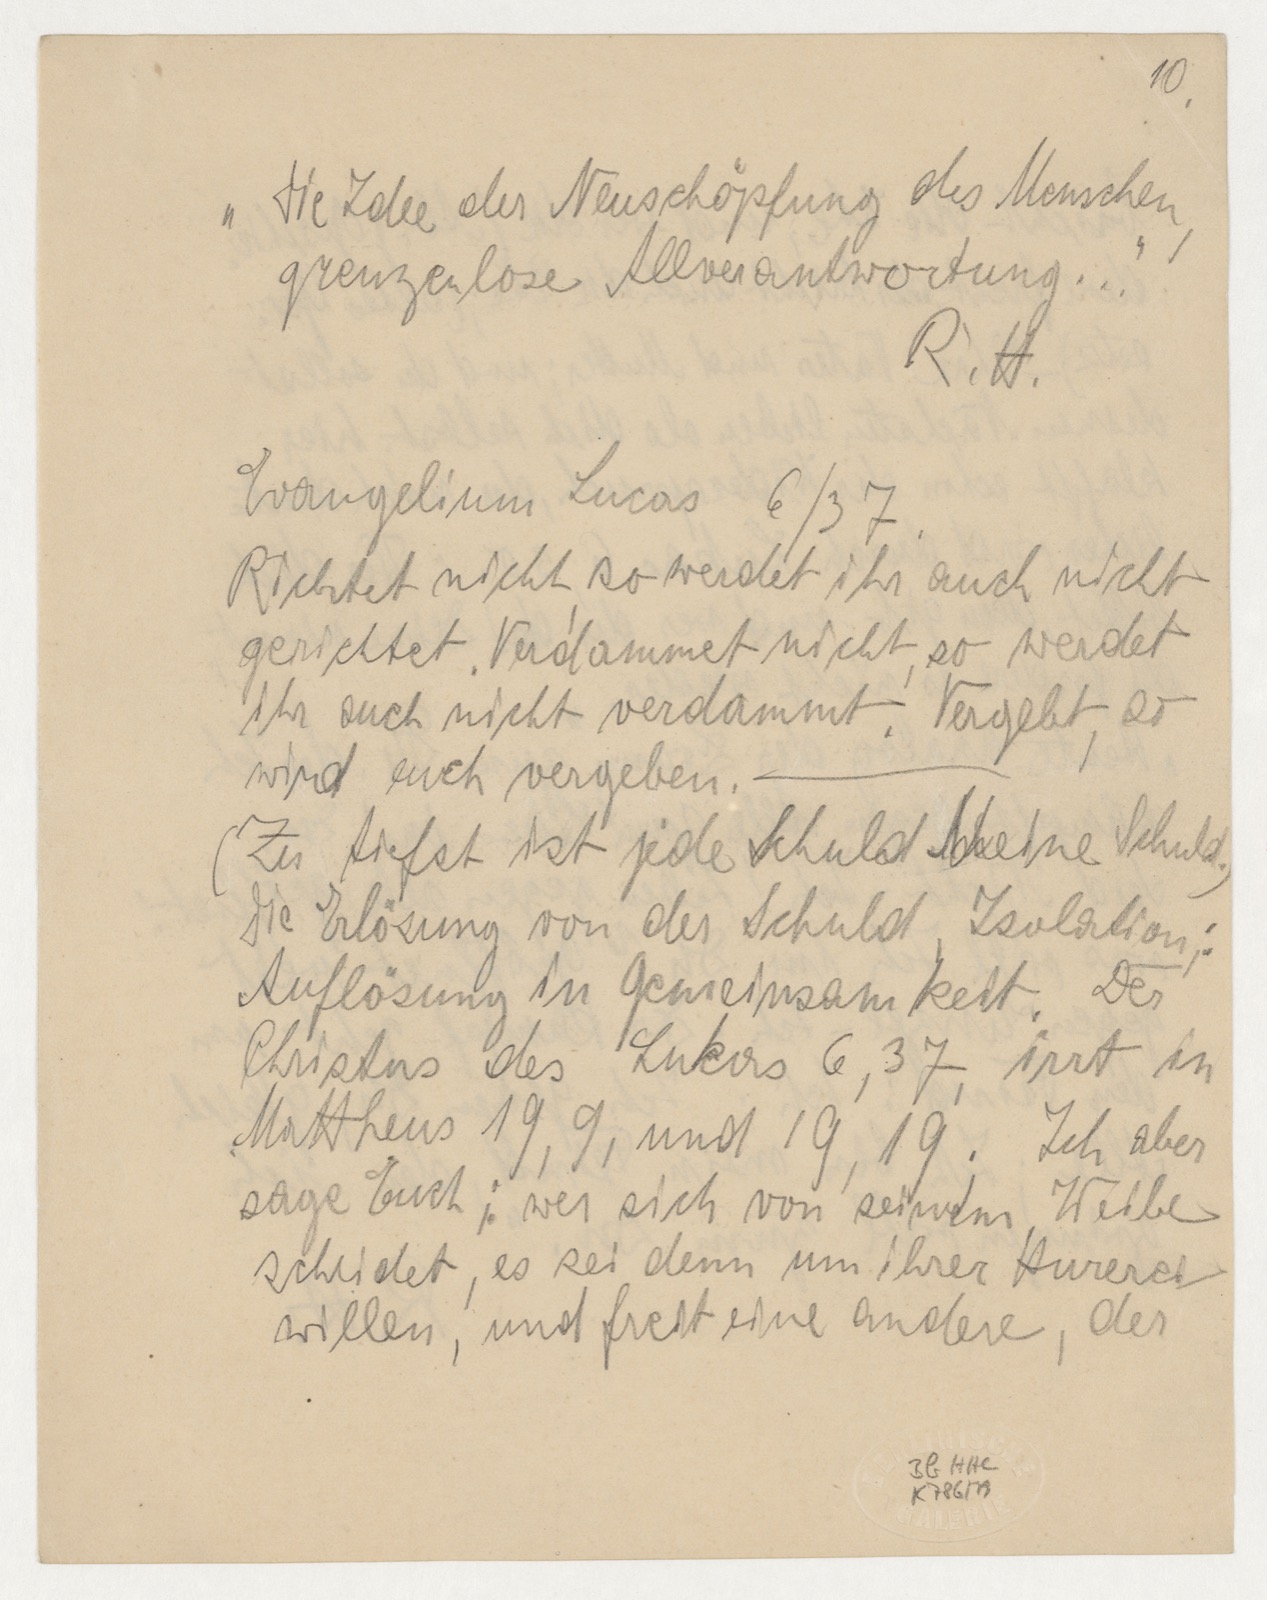 10.
„ Die Idee der Neuschöpfung des Menschen,
grenzenlose Allverantwortung..."!
R.H.
Evangelium Lucas 6/37.
Richtet nicht, so werdet ihr auch nicht
gerichtet. Verdammet nicht, so werdet
ihr auch nicht verdammt. Vergebt, so
wird euch vergeben. —
(Zu tiefst ist jede Schuld Meine Schuld.)
Die Erlösung von der Schuld, Isolation,:
Auflösung in Gemeinsamkeit. Der
Christus des Lukas 6,37, irrt in
Mattheus 19,9, und 19,19. Ich aber
sage Euch;: wer sich von seinem Weibe
scheidet, es sei denn um ihrer Hurerei
willen, und freit eine andere, der
BG HHC
K786/79
GALERIE